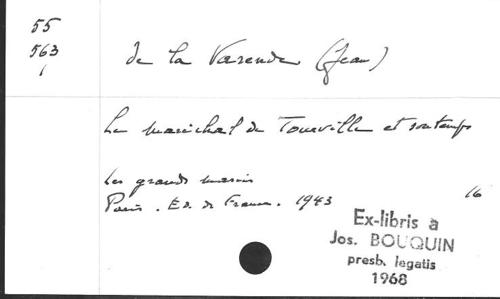 55
563
1
de la Varende (Jean)
Le maréchal de Tourville et son temps
Les grands marins
Paris. Ed. de France. 1943
16
Ex-libris à
Jos. BOUQUIN
presb. legatis
1968